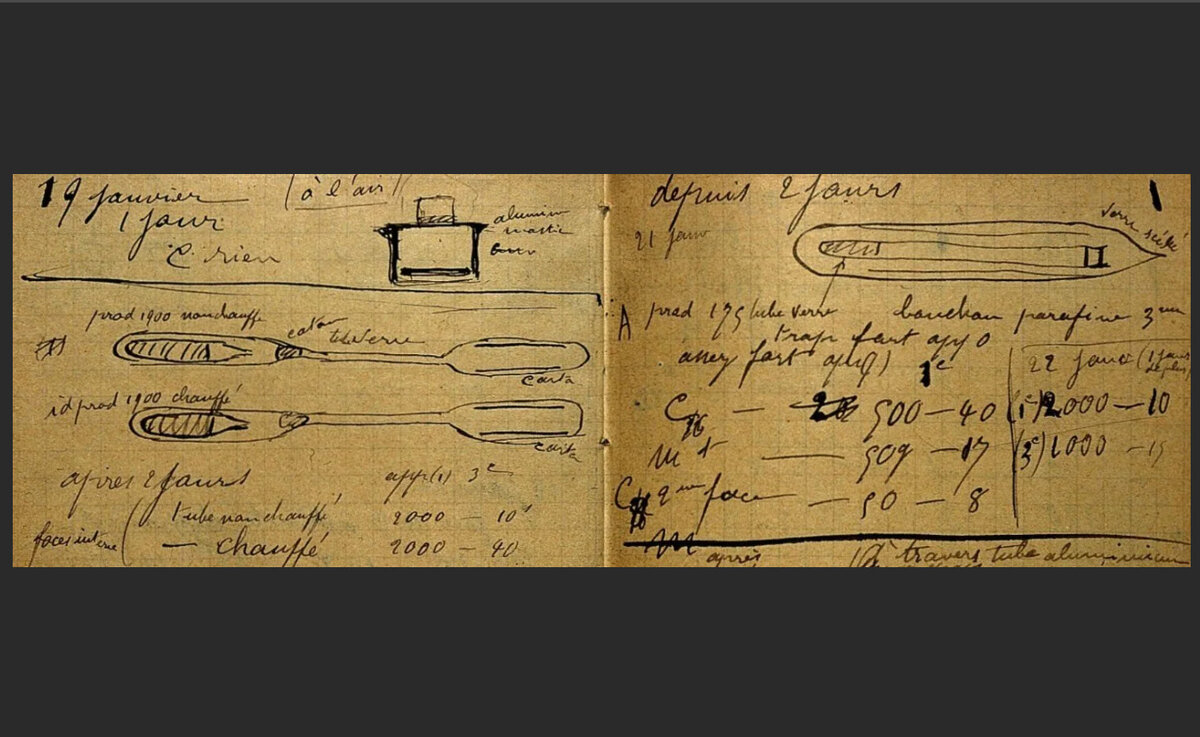 19 janvier (à l'air)
1 jour
C rien
alumin
mastic
prod 1900 non chauffé
coton
tube verre
carta
id prod 1900 chauffé
carta
après 2 jours app (1) 3c
faces interne ( tube non chauffé 2000 — 10s
— chauffé 2000 — 40
depuis 2 jours 1
21 janv
verre scellé
A prod 175 tube verre bouchon parafine 3
trop fort app 0
assez fort app 1c
22 janv (1 jour de plus)
C — 500 — 40 (1c) 2000 — 10
m t — 509 — 17 (3c) 1000 — 15
C 2 face — 50 — 8
m après à travers tube aluminium